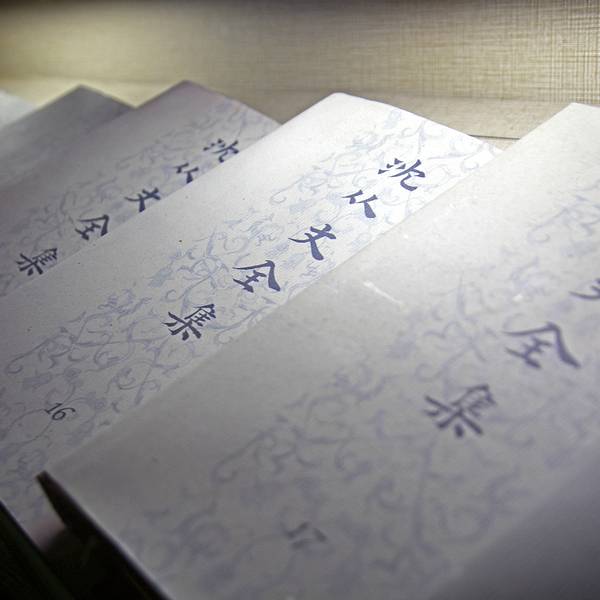 沈从文全集
沈从文全集
16
全集
17